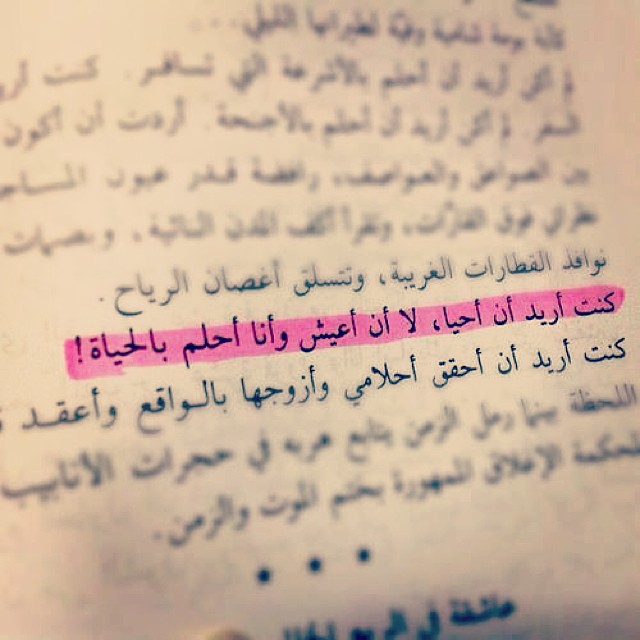 لم أكن أريد أن أحلم بالأشرعة التي تسافر. كنت
السفر. لم أكن أريد أن أحلم بالأجنحة. أردت أن أكون
بين الصواعق والعواصف، رافضة قدر عيون
فوق القارات، وتقرأ أكف المدن النائية،
نوافذ القطارات الغريبة، وتتسلق أغصان الرياح.
كنت أريد أن أحيا، لا أن أعيش وأنا أحلم بالحياة!
كنت أريد أن أحقق أحلامي وأزوجها بالواقع وأعقد
اللحظة بينما رمل الزمن يتابع هربه في حجرات الأنابيب
المحكمة الإغلاق الممهورة بختم الموت والزمن.
• • •
عاشقة في